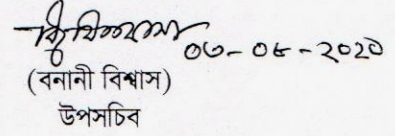 ০৩-০৫-২০২৩
(বনানী বিশ্বাস)
উপসচিব